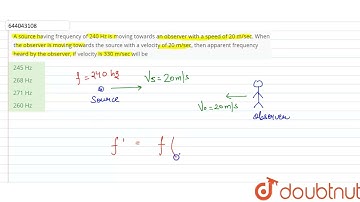 644043108
A source having frequency of 240 Hz is moving towards an observer with a speed of 20 m/sec. When
the observer is moving towards the source with a velocity of 20 m/sec, then apparent frequency
heard by the observer, if velocity is 330 m/sec will be
245 Hz
268 Hz
271 Hz
260 Hz
f = 240 hz
Source
Vs = 20 m/s
Vo = 20 m/s
observer
f' = f (
doubtnut